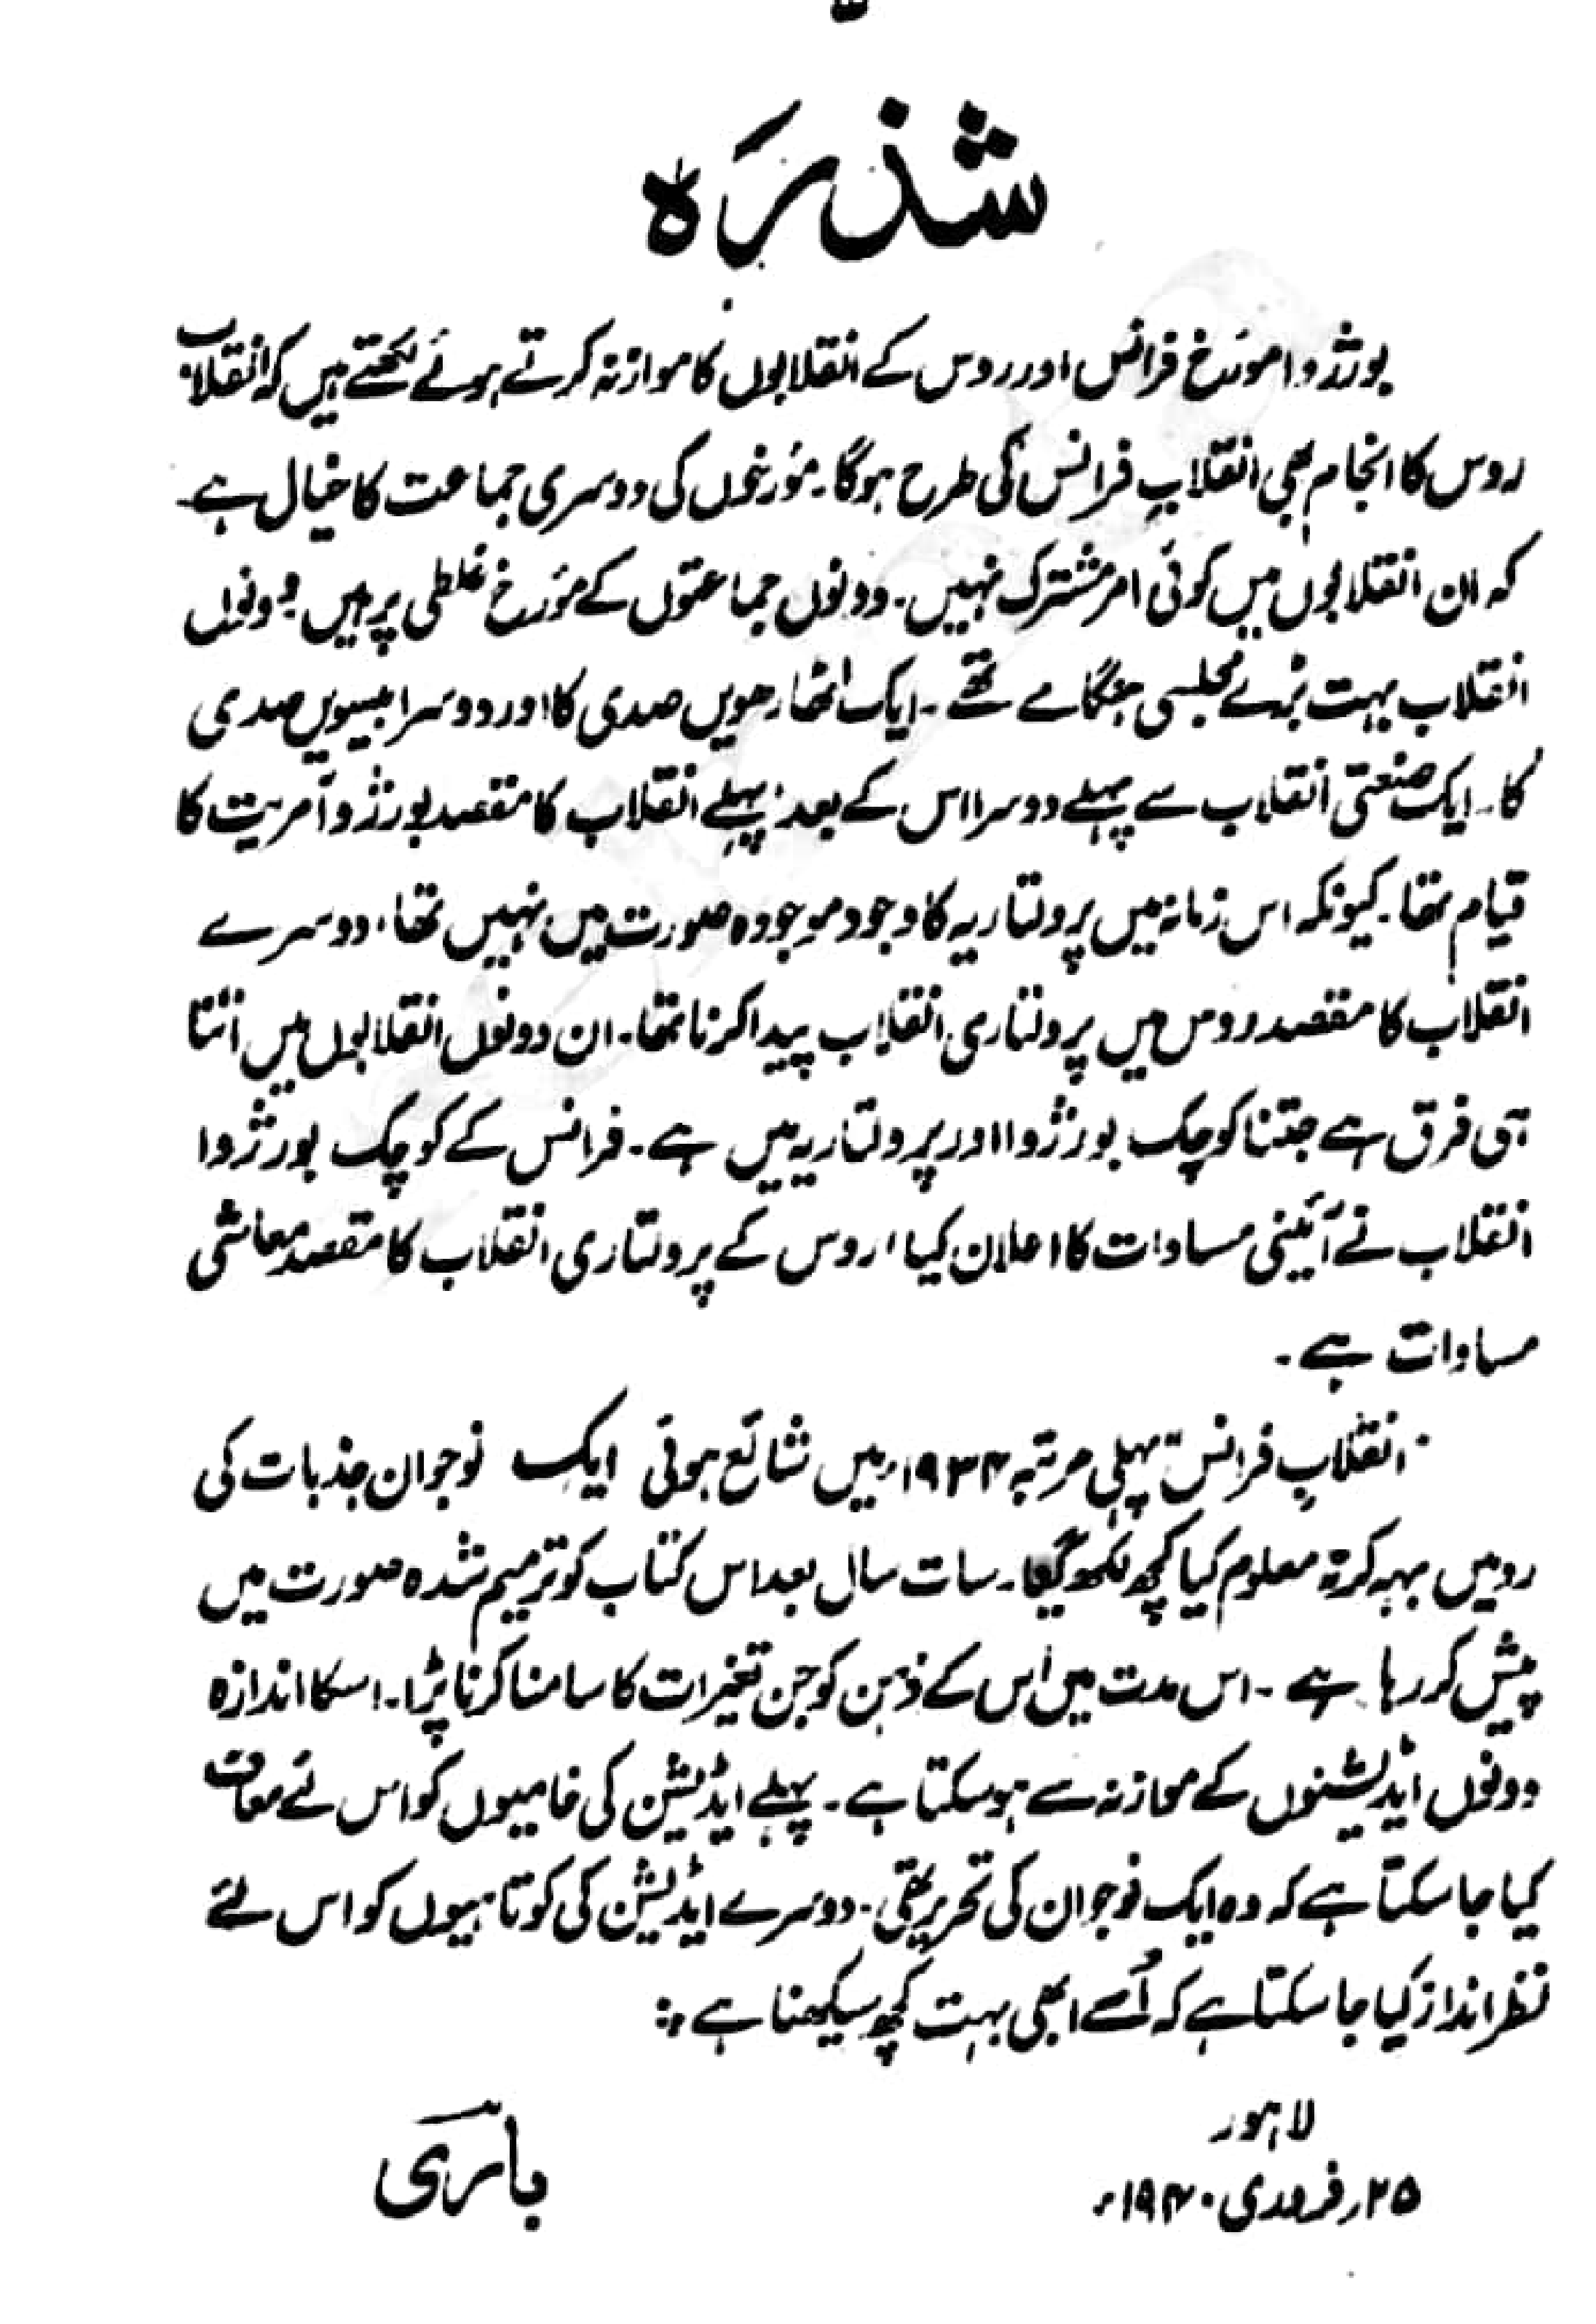 شذرہ
بورژوا مورخ فرانس اور روس کے انقلابوں کا موازنہ کرتے ہوئے لکھتے ہیں کہ انقلاب
روس کا انجام بھی انقلابِ فرانس کی طرح ہوگا۔ مؤرخوں کی دوسری جماعت کا خیال ہے۔
کہ ان انقلابوں میں کوئی امر مشترک نہیں۔ دونوں جماعتوں کے مؤرخ غلطی پر ہیں؛ دونوں
انقلاب بہت بڑے مجلسی ہنگامے تھے۔ ایک اٹھارھویں صدی کا اور دوسرا بیسویں صدی
کا۔ ایک صنعتی انقلاب سے پہلے دوسرا اس کے بعد؛ پہلے انقلاب کا مقصد بورژوا آمریت کا
قیام تھا۔ کیونکہ اس زمانہ میں پرولتاریہ کا وجود موجودہ صورت میں نہیں تھا، دوسرے
انقلاب کا مقصد روس میں پرولتاری انقلاب پیدا کرنا تھا۔ ان دونوں انقلابوں میں اتنا
ہی فرق ہے جتنا کوچک بورژوا اور پرولتاریہ میں ہے۔ فرانس کے کوچک بورژوا
انقلاب نے آئینی مساوات کا اعلان کیا، روس کے پرولتاری انقلاب کا مقصد معاشی
مساوات ہے۔
"انقلابِ فرانس" پہلی مرتبہ ۱۹۳۴ء میں شائع ہوئی ایک نوجوان جذبات کی
رو میں بہہ کر نہ معلوم کیا کچھ لکھ گیا۔ سات سال بعد اس کتاب کو ترمیم شدہ صورت میں
پیش کر رہا ہے۔ اس مدت میں اُس کے ذہن کو جن تغیرات کا سامنا کرنا پڑا۔ اسکا اندازہ
دونوں ایڈیشنوں کے موازنہ سے ہو سکتا ہے۔ پہلے ایڈیشن کی خامیوں کو اس لئے معاف
کیا جا سکتا ہے کہ وہ ایک نوجوان کی تحریر تھی۔ دوسرے ایڈیشن کی کوتاہیوں کو اس لئے
نظر انداز کیا جا سکتا ہے کہ اُسے ابھی بہت کچھ سیکھنا ہے ؛
لاہور
۲۵ فروری ۱۹۴۰ء
باری